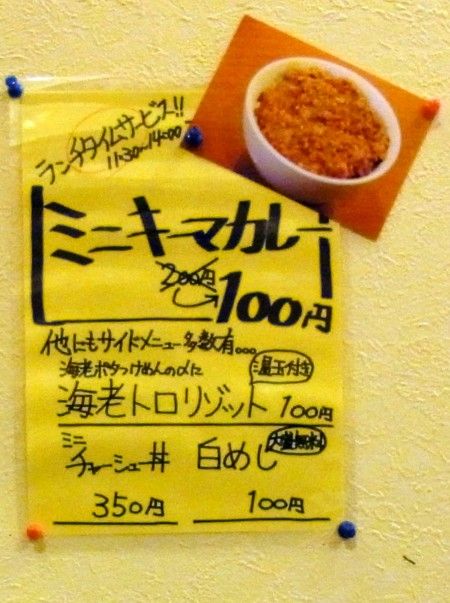 ランチタイムサービス!!
11:30~14:00
ミニキーマカレー
200円
100円
他にもサイドメニュー多数有...
海老ポタつけめんの〆に
温玉付き
海老トロリゾット 100円
ミニ
チャーシュー丼 白めし 大盛無料
350円 100円